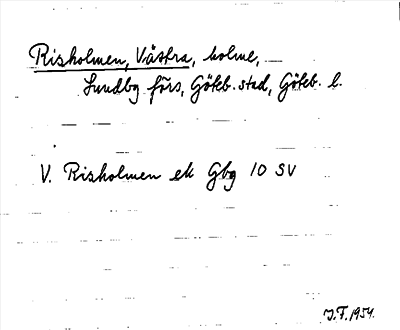 Risholmen, Västra, holme,
Lundby förs, Göteb. stad, Göteb. l.
V. Risholmen ek Gbg 10 SV
J.F. 1954.